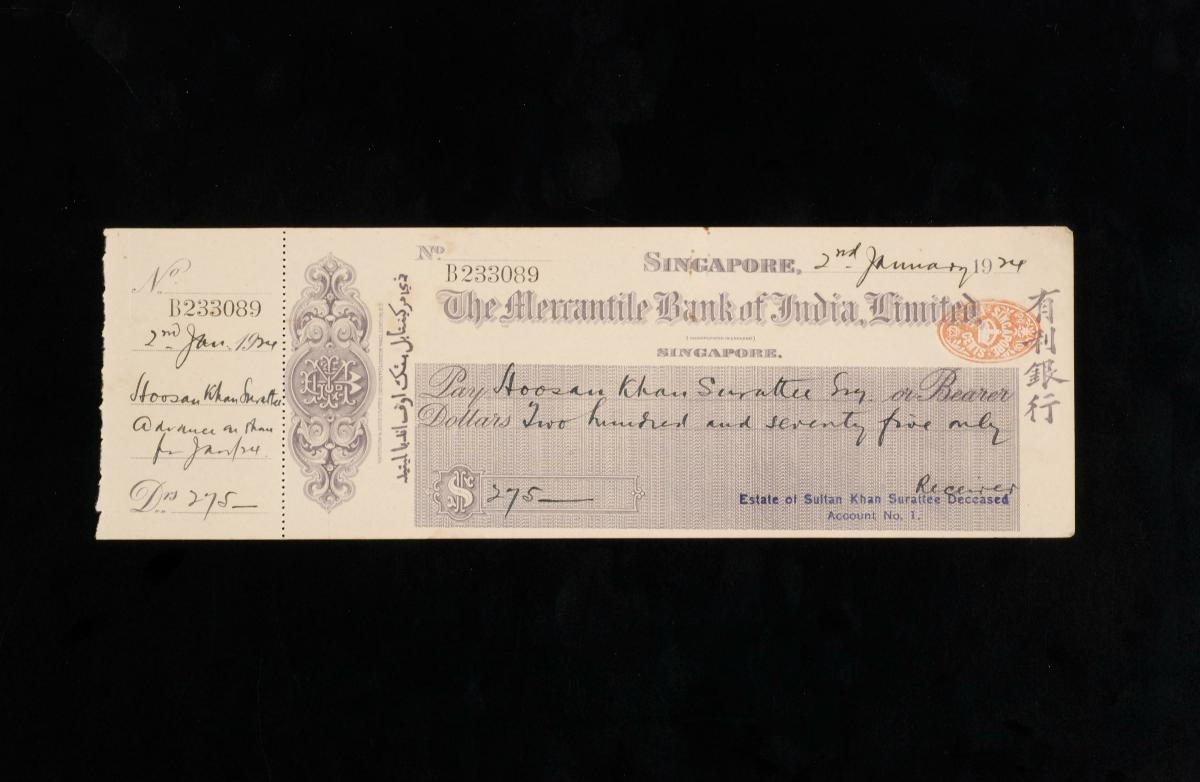 No.
B233089
2nd Jan. 1924
Hoosan Khan Surattee
Advance on Shan
for Jan/24.
Drs 275—
ذي مركنتايل بنك اوف انديا ليميتد
No.
B233089
SINGAPORE, 2nd January 1924
The Mercantile Bank of India, Limited
SINGAPORE.
有利銀行
Pay Hoosan Khan Surattee Esq. or Bearer
Dollars Two hundred and seventy five only
$ 275—
Receiver
Estate of Sultan Khan Surattee Deceased
Account No. 1.